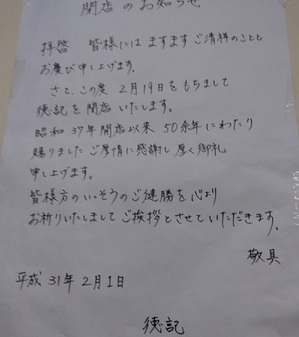 閉店のお知らせ
拝啓 皆様にはますますご清祥のこと
お慶び申し上げます。
さて、この度 2月19日をもちまして
徳記を閉店いたします。
昭和37年開店以来 50余年にわたり
賜りましたご厚情に感謝し厚く御礼
申し上げます。
皆様方のいっそうのご健勝を心より
お祈りいたしましてご挨拶とさせていただきます。
敬具
平成 31年 2月1日
徳記